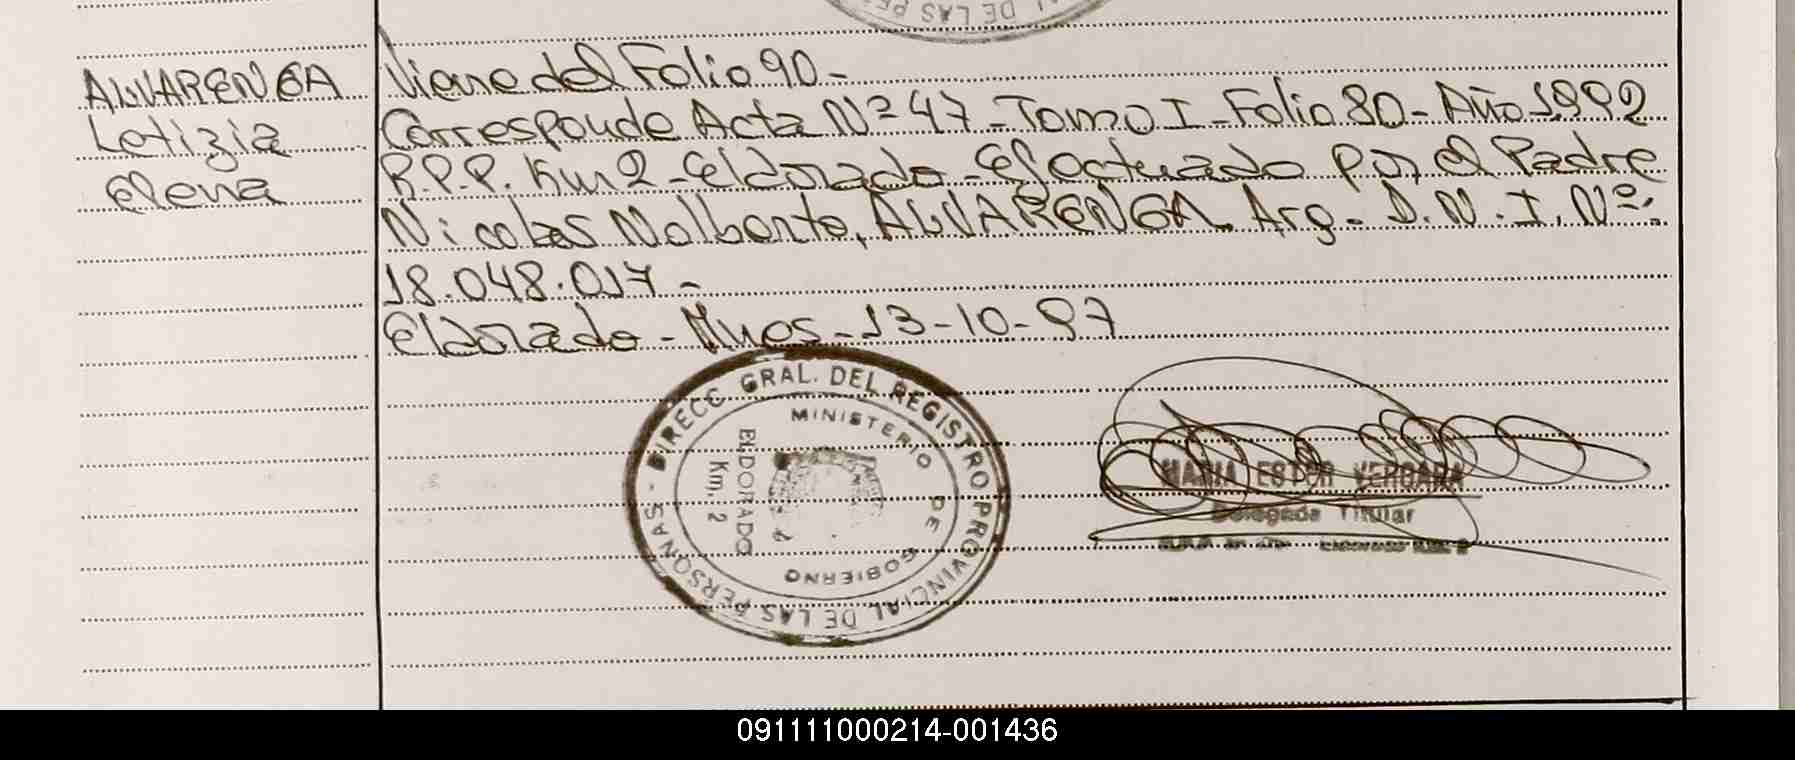 DE LAS PE
ALVARENGA
Letizia
Elena
Viene del Folio 90-
Corresponde Acta Nº 47-Tomo I-Folio 80-Año 1992
R.P.P. Km 2-Eldorado-Efectuado por el Padre
Nicolas Nolberto, ALVARENGA. Arg- D.N.I. Nº:
18.048.017-
Eldorado-Mnes-13-10-97
DIRECC GRAL. DEL REGISTRO PROVINCIAL DE LAS PERSONAS -
MINISTERIO DE GOBIERNO
ELDORADO
Km. 2
MARIA ESTER VERGARA
Delegada Titular
091111000214-001436